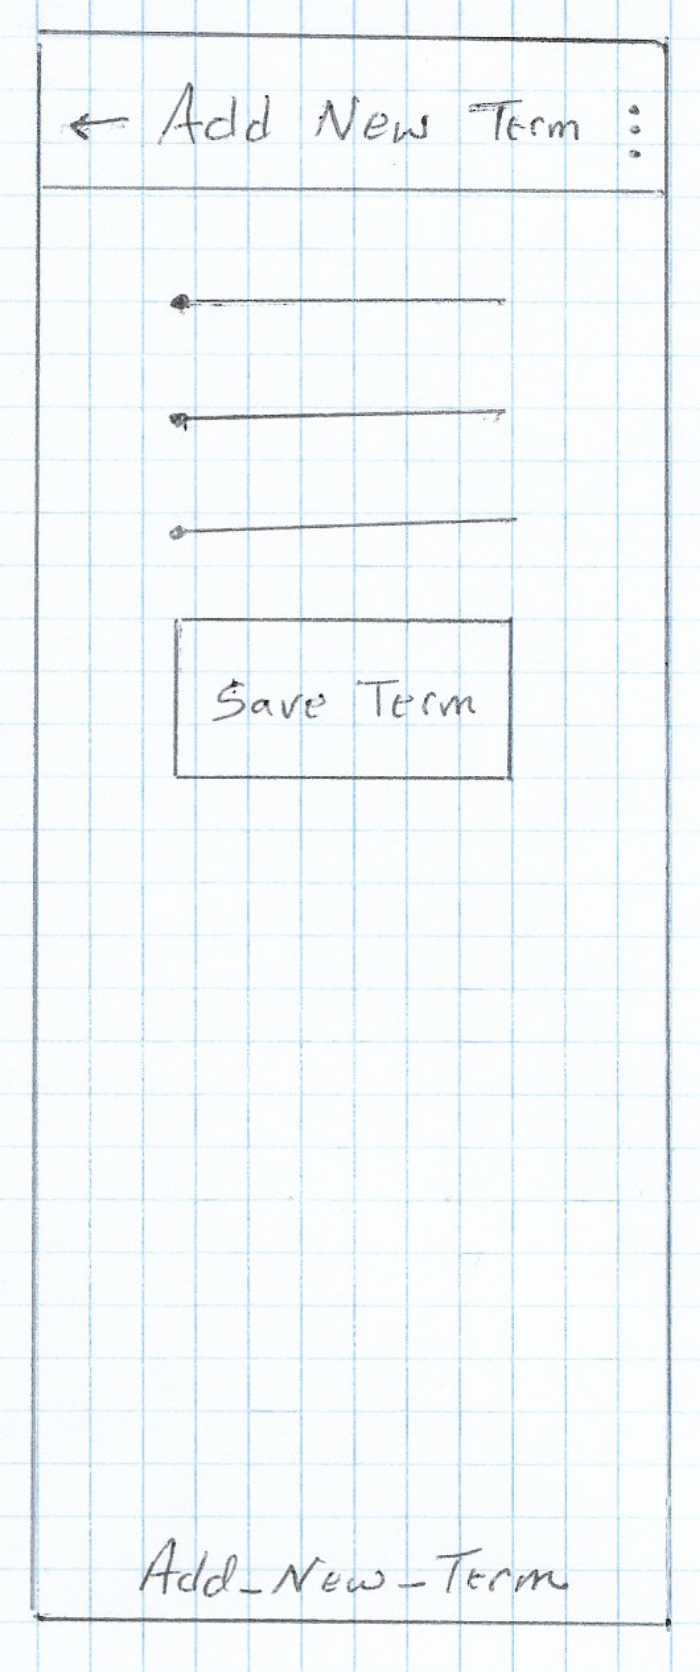 ← Add New Term ⋮
Save Term
Add_New_Term